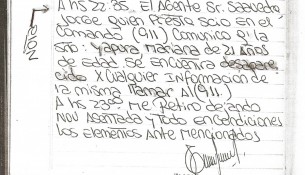 NOV
A hs 22:35. El Agente Sr. Saavedra,
Jorge quien Presta Scio en el
Comando (911) Comunico q' la
Sra: Yapura Mariana de 21 Años
de Edad Se Encuentra desapare
cido x Cualquier Informacion de
la misma llamar Al (911)
A hs 23:00 Me Retiro dejando
Nov Asentada y Todo En Condiciones
los elementos Ante Mencionados